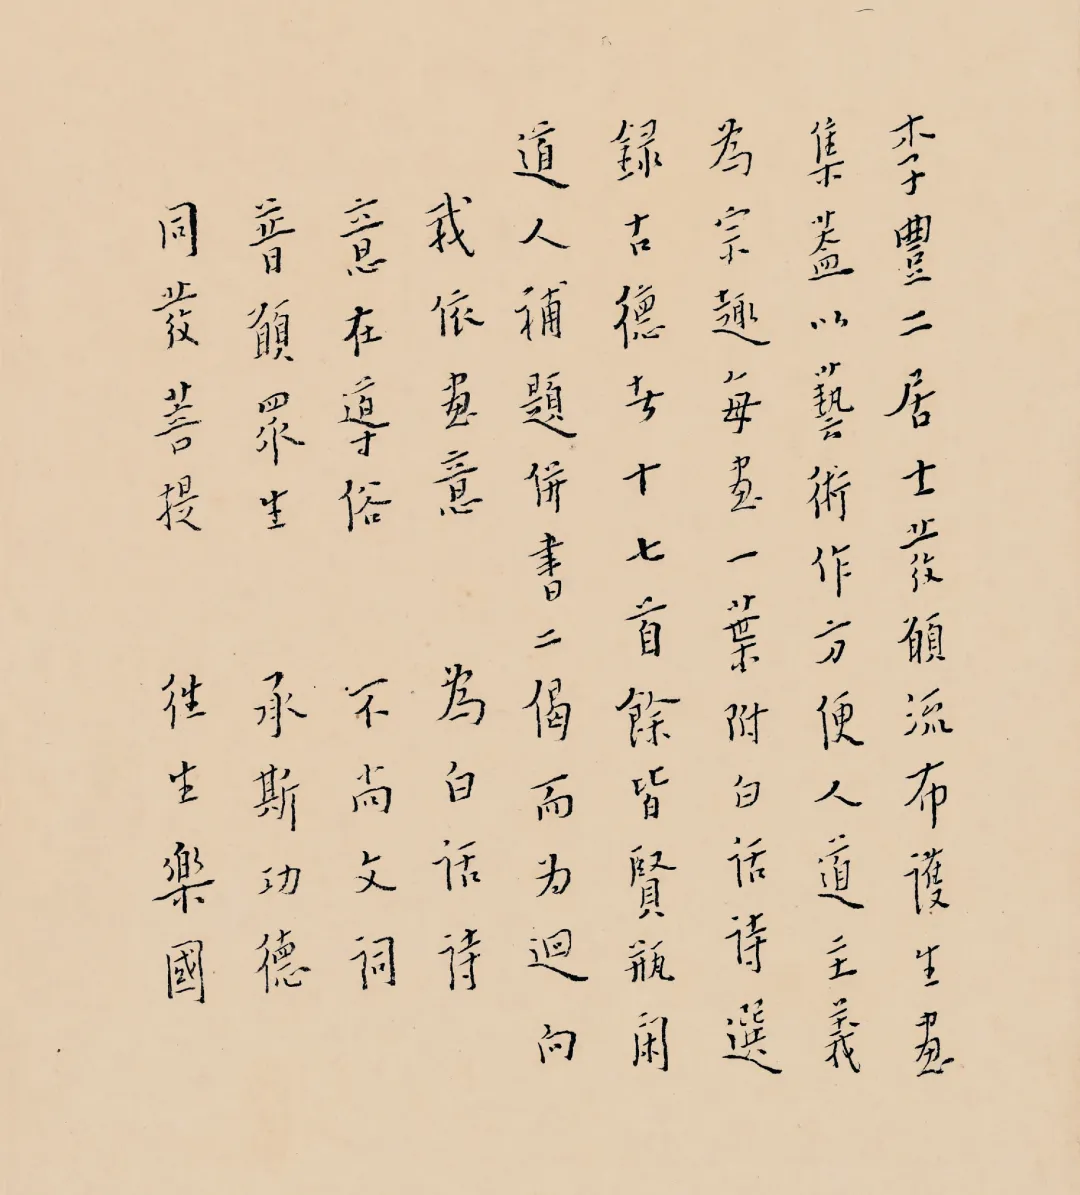 李豐二居士發願流布護生畫
集蓋以藝術作方便人道主義
為宗趣每畫一葉附白話詩選
錄古德者十七首餘皆賢瓶閑
道人補題併書二偈而为迴向
我依畫意 為白話詩
意在導俗 不尚文詞
普願眾生 承斯功德
同發菩提 往生樂國